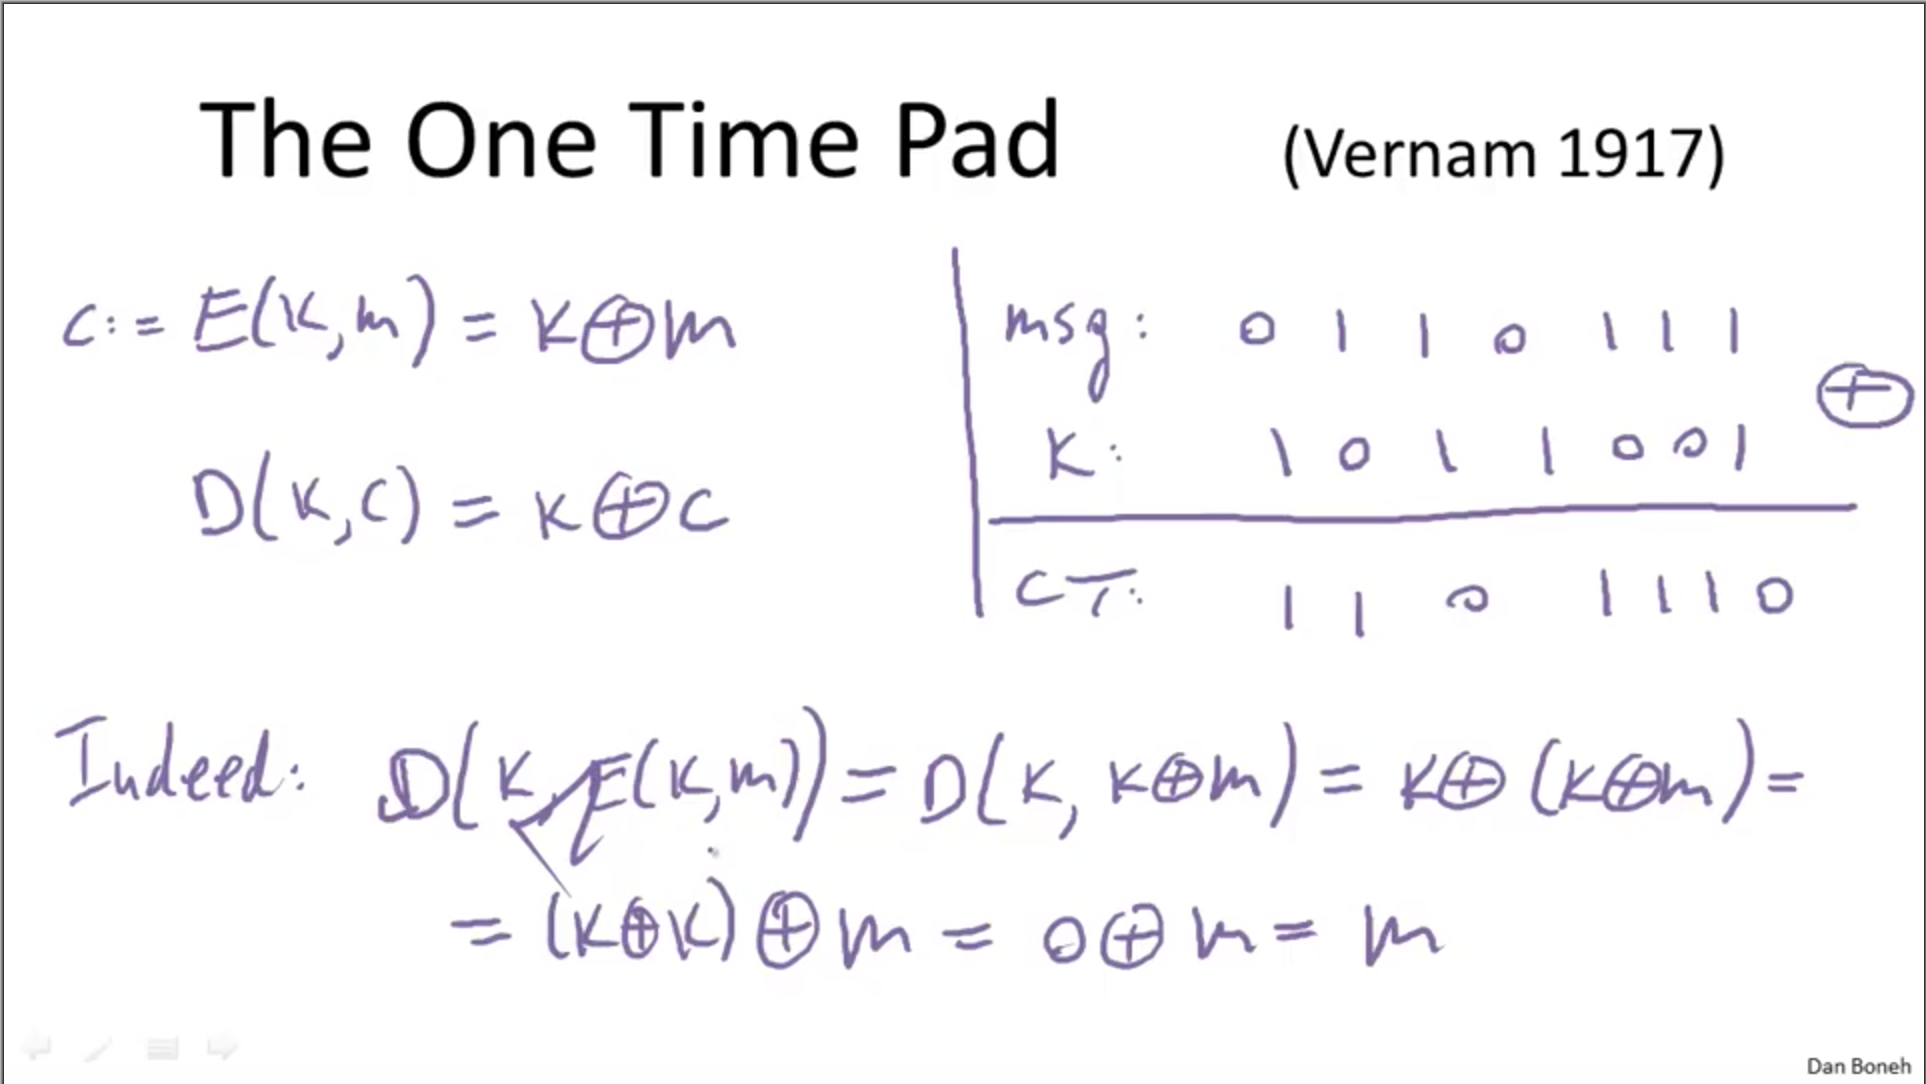 The One Time Pad (Vernam 1917)
c := E(k,m) = k⊕m
D(k,c) = k⊕c
msg: 0 1 1 0 1 1 1
⊕
k: 1 0 1 1 0 0 1
CT: 1 1 0 1 1 1 0
Indeed: D(k, E(k,m)) = D(k, k⊕m) = k⊕(k⊕m) =
= (k⊕k)⊕m = 0⊕m = m
Dan Boneh